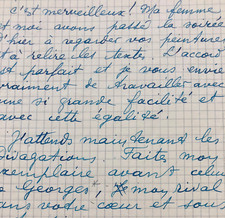 c'est merveilleux! Ma femme
et moi avons passé la soirée
d'hier à regarder vos peintures
et à relire les textes. L'accord
est parfait et je vous envie
vraiment de travailler avec
une si grande facilité et
avec cette égalité.
J'attends maintenant les
Divagations. Faites moy
exemplaire avant celui
de Georges, mon rival
dans votre cœur et sous